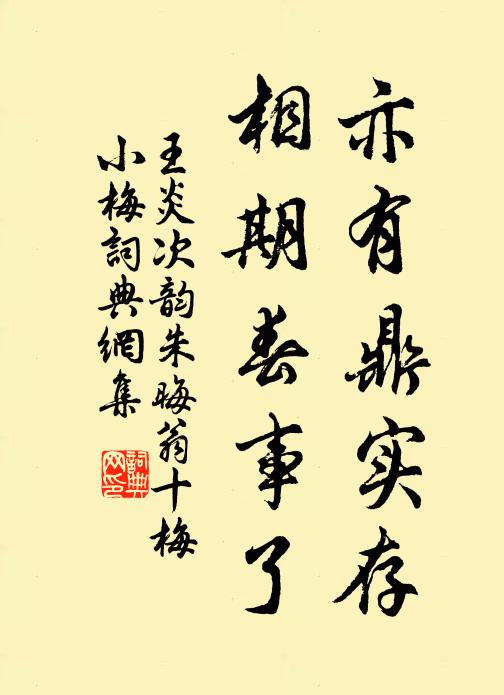 亦有鼎实存
相期春事了
王炎次韵朱晦翁十梅
小梅詞典網集
詞典网印